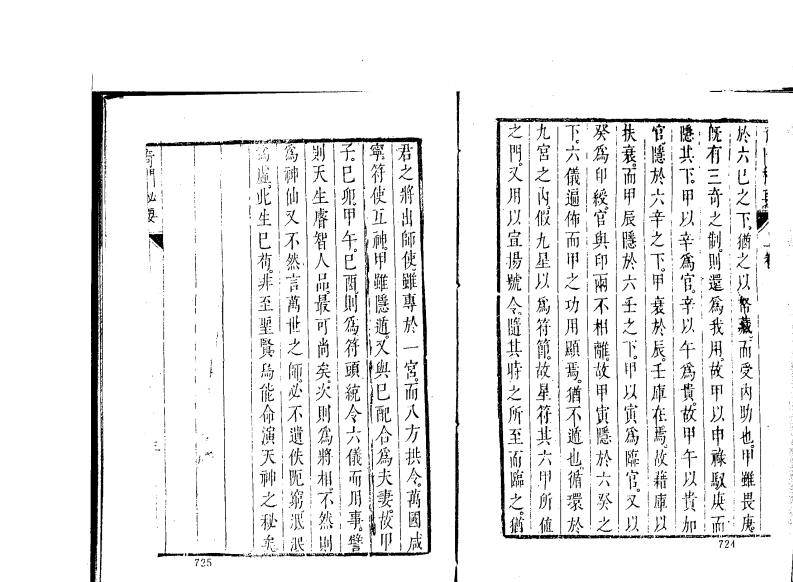 於六巳之下猶之以帑藏而受內助也甲雖畏庚
旣有三奇之制則還為我用故甲以申祿馭庚而
隱其下甲以辛為官辛以午為貴故甲午以貴加
官隱於六辛之下甲衰於辰壬庫在焉故藉庫以
扶衰而甲辰隱於六壬之下甲以寅為臨官又以
癸為印綬官與印兩不相離故甲寅隱於六癸之
下六儀遍佈而甲之功用顯焉猶不遁也循環於
九宮之內假九星以為符節故星符其六甲所值
之門又用以宣揚號令隨其時之所至而臨之猶
724
君之將出師使雖專於一宮而八方拱令萬國咸
寧符使互神甲雖隱遁又與巳配合為夫妻故甲
子巳卯甲午巳酉則為符頭統令六儀而用事譬
則天生睿智人品最可尚矣次則為將相不然則
為神仙又不然言萬世之師必不遺佚阨窮泯泯
為虛此生巳苟非至聖賢烏能命演天神之秘矣
奇門必要
725